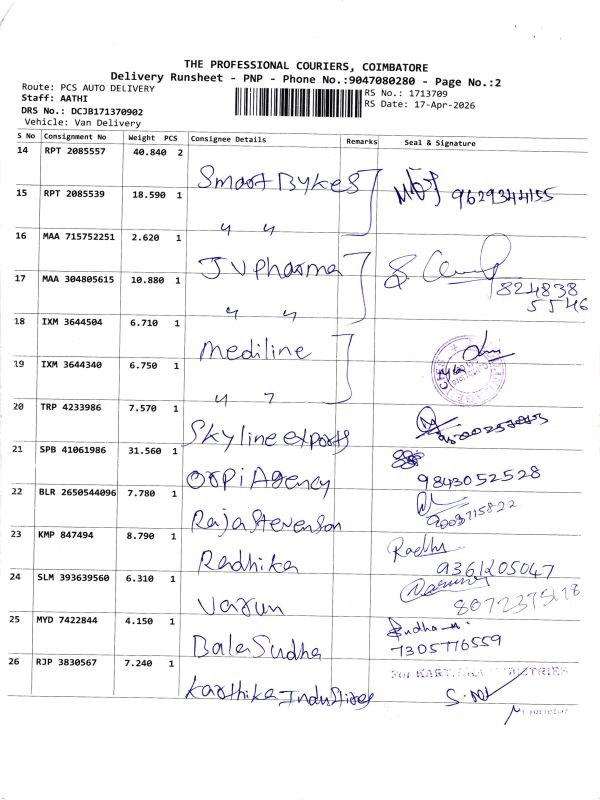 THE PROFESSIONAL COURIERS, COIMBATORE
Delivery Runsheet - PNP - Phone No.:9047080280 - Page No.:2
Route: PCS AUTO DELIVERY
Staff: AATHI
DRS No.: DCJB171370902
Vehicle: Van Delivery
RS No.: 1713709
RS Date: 17-Apr-2026
S No Consignment No Weight PCS Consignee Details Remarks Seal & Signature
14 RPT 2085557 40.840 2 Smart Bykes
15 RPT 2085539 18.590 1 " " 9629344155
16 MAA 715752251 2.620 1 J V Pharma
17 MAA 304805615 10.880 1 " " 824838
5546
18 IXM 3644504 6.710 1 Mediline
19 IXM 3644340 6.750 1 " "
20 TRP 4233986 7.570 1 Skyline exports
21 SPB 41061986 31.560 1 Orpi Agency 9843052528
22 BLR 2650544096 7.780 1 Raja Stevenson 9003715822
23 KMP 847494 8.790 1 Radhika Radhi 9361205047
24 SLM 393639560 6.310 1 Varun
25 MYD 7422844 4.150 1 Bala Sudha Sudha
7305776559
26 RJP 3830567 7.240 1 Karthika Industries For KARTHIKA INDUSTRIES